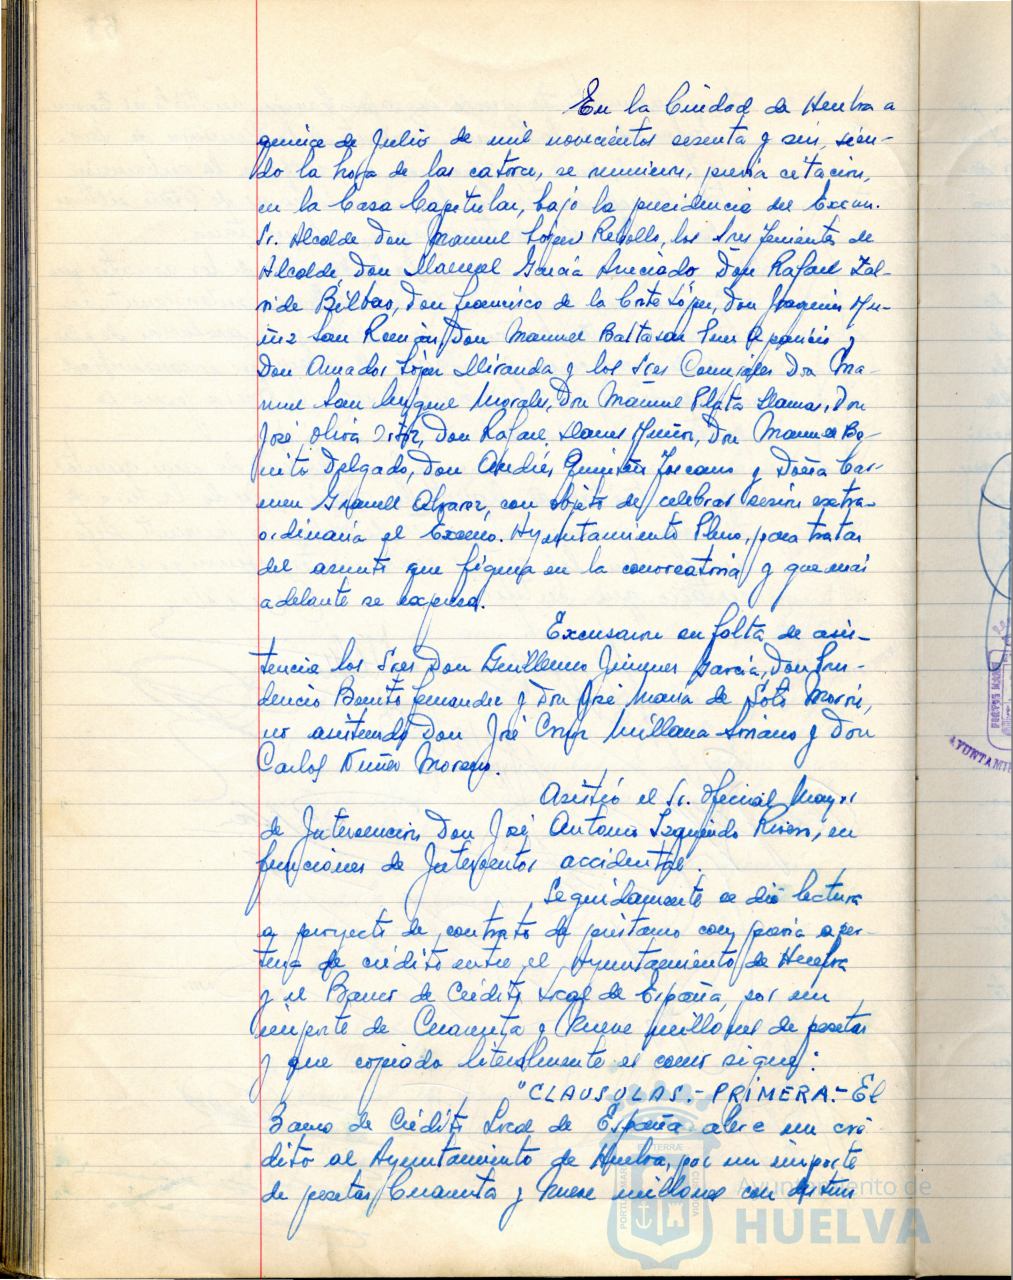 En la Ciudad de Huelva a
quince de Julio, de mil novecientos sesenta y seis, sien-
do la hora de las catorce, se reunieron, previa citación,
en la Casa Capitular, bajo la presidencia del Excmo.
Sr. Alcalde Don Manuel López Rebollo, los Sres Tenientes de
Alcalde, Don Manuel García Don Rafael Zal-
vide Bilbao, Don Francisco de la Corte López, Don Joaquin Mu-
ñiz San Román, Don Manuel Baltasar Aparicio y
Don Amador López Miranda y los Sres Concejales Don Ma-
nuel San Miguel Morales, Don Manuel Plata Llamas, Don
José Oliva Don Rafael Llanes Muñoz, Don Manuel Be-
nito Delgado, Don Andrés Toscano y Doña Car-
men Alvarez, con objeto de celebrar sesión extra-
ordinaria el Excmo. Ayuntamiento Pleno, para tratar
del asunto que figura en la convocatoria y que más
adelante se expresa.
Excusaron su falta de asis-
tencia los Sres Don Guillermo Jimenez García, Don Pru-
dencio Benito Fernandez y Don José María de Soto Morón,
no asistiendo Don José Millana Soriano y Don
Carlos Núñez Moreno.
Asistió el Sr. Oficial Mayor
de Intervención Don José Antonio Izquierdo Rivero, en
funciones de Interventor accidental.
Seguidamente se dio lectura
a proyecto de contrato de préstamo con previa aper-
tura de crédito entre el Ayuntamiento de Huelva
y el Banco de Crédito Local de España, por un
importe de Cuarenta y Nueve millones de pesetas
y que copiado literalmente es como sigue:
"CLAUSULAS.- PRIMERA.- El
Banco de Crédito Local de España abre un cré-
dito al Ayuntamiento de Huelva, por un importe
de pesetas Cuarenta y Nueve millones con
Ayuntamiento de
HUELVA